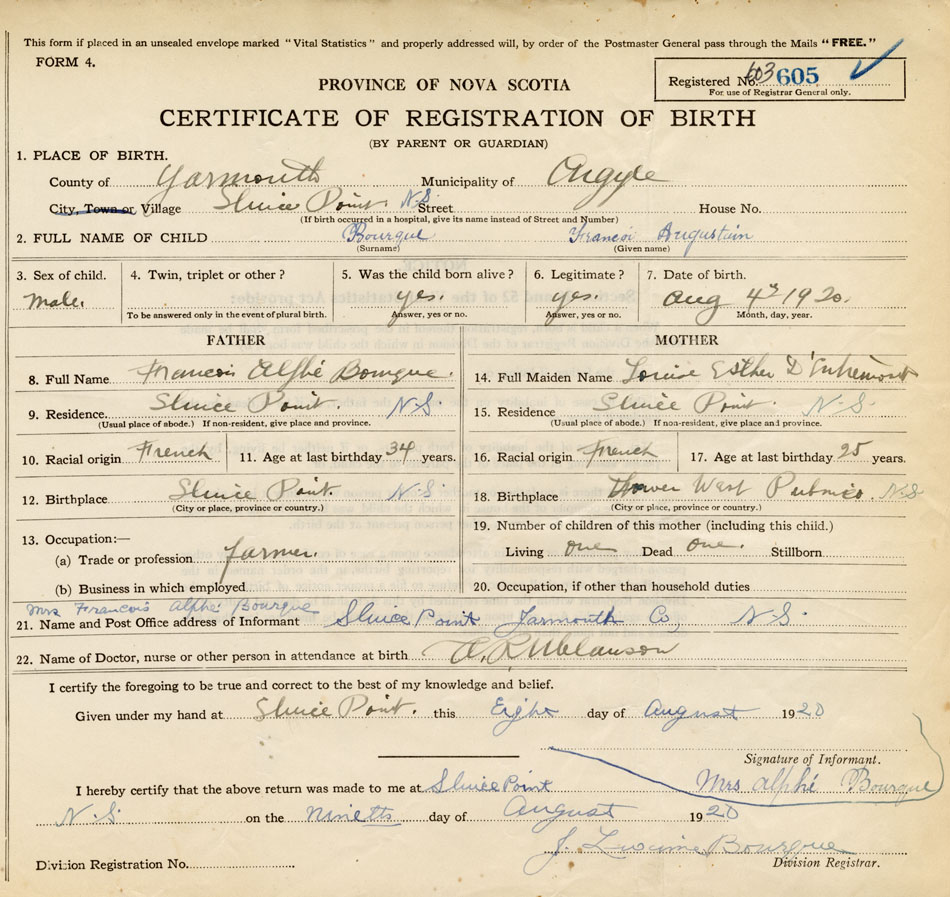 This form if placed in an unsealed envelope marked "Vital Statistics" and properly addressed will, by order of the Postmaster General pass through the Mails "FREE."
FORM 4.
Registered No. 603 605
For use of Registrar General only.
PROVINCE OF NOVA SCOTIA
CERTIFICATE OF REGISTRATION OF BIRTH
(BY PARENT OR GUARDIAN)
1. PLACE OF BIRTH.
County of Yarmouth Municipality of Argyle
City, Town or Village Sluice Point. N.S. Street House No.
(If birth occurred in a hospital, give its name instead of Street and Number)
2. FULL NAME OF CHILD Bourque Francoi Augustain
(Surname) (Given name)
3. Sex of child. 4. Twin, triplet or other? 5. Was the child born alive? 6. Legitimate? 7. Date of birth.
male. yes. yes. Aug 4th 1920.
To be answered only in the event of plural birth. Answer, yes or no. Answer, yes or no. Month, day, year.
FATHER MOTHER
8. Full Name Francois Alphé Bourque. 14. Full Maiden Name Louise Esther D'Entremont
9. Residence. Sluice Point. N.S. 15. Residence Sluice Point. N.S.
(Usual place of abode.) If non-resident, give place and province. (Usual place of abode.) If non-resident, give place and province.
10. Racial origin French 11. Age at last birthday 34 years. 16. Racial origin French 17. Age at last birthday 25 years.
12. Birthplace Sluice Point. N.S. 18. Birthplace Lower West Pubnico. N.S.
(City or place, province or country.) (City or place, province or country.)
13. Occupation:— 19. Number of children of this mother (including this child.)
(a) Trade or profession farmer. Living one Dead one. Stillborn
(b) Business in which employed 20. Occupation, if other than household duties
Mrs Francois Alphé Bourque
21. Name and Post Office address of Informant Sluice Point Yarmouth Co, N.S.
22. Name of Doctor, nurse or other person in attendance at birth
I certify the foregoing to be true and correct to the best of my knowledge and belief.
Given under my hand at Sluice Point. this Eight day of August 1920
Signature of Informant.
Mrs Alphé Bourque
I hereby certify that the above return was made to me at Sluice Point
N.S. on the Nineth day of August 1920
J. Bourque
Division Registration No. Division Registrar.